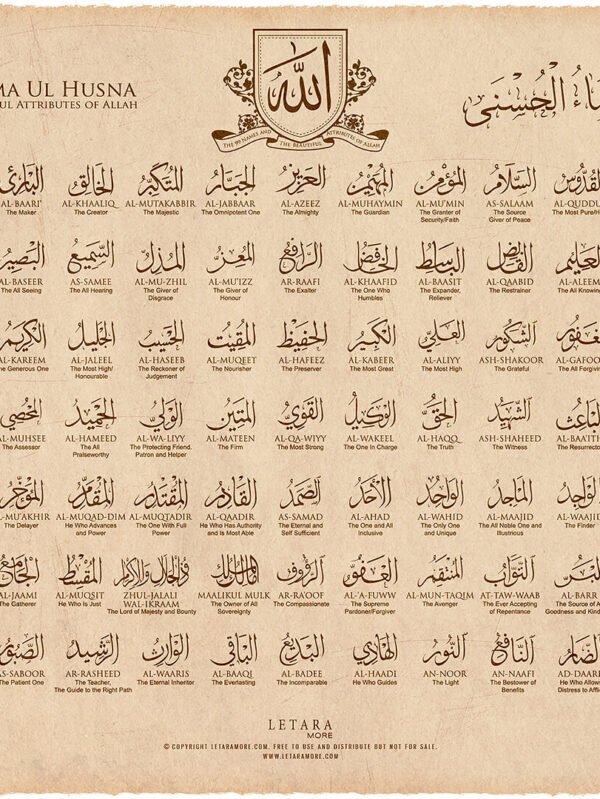 MA UL HUSNA
UL ATTRIBUTES OF ALLAH
الله
THE 99 NAMES AND THE BEAUTIFUL ATTRIBUTES OF ALLAH
اء الحسنى
القدوس السلام المؤمن المهيمن العزيز الجبار المتكبر الخالق البارئ
AL-BAARI' AL-KHAALIQ AL-MUTAKABBIR AL-JABBAAR AL-AZEEZ AL-MUHAYMIN AL-MU'MIN AS-SALAAM AL-QUDDU
The Maker The Creator The Majestic The Omnipotent One The Almighty The Guardian The Granter of The Source The Most Pure/H
Security/Faith Giver of Peace
العليم القابض الباسط الخافض الرافع المعز المذل السميع البصير
AL-BASEER AS-SAMEE AL-MU-ZHIL AL-MU'IZZ AR-RAAFI AL-KHAAFID AL-BAASIT AL-QAABID AL-ALEEM
The All Seeing The All Hearing The Giver of The Giver of The Exalter The One Who The Expander, The Restrainer The All Knowing
Disgrace Honour Humbles Reliever
الغفور الشكور العلي الكبير الحفيظ المقيت الحسيب الجليل الكريم
AL-KAREEM AL-JALEEL AL-HASEEB AL-MUQEET AL-HAFEEZ AL-KABEER AL-ALIYY ASH-SHAKOOR AL-GAFOO
he Generous One The Most High/ The Reckoner of The Nourisher The Preserver The Most Great The Most High The Grateful The All Forgivi
Honourable Judgement
الباعث الشهيد الحق الوكيل القوي المتين الولي الحميد المحصي
AL-MUHSEE AL-HAMEED AL-WA-LIYY AL-MATEEN AL-QA-WIYY AL-WAKEEL AL-HAQQ ASH-SHAHEED AL-BAA'ITH
The Assessor The All The Protecting Friend, The Firm The Most Strong The One In Charge The Truth The Witness The Resurrecto
Praiseworthy Patron and Helper
الواجد الماجد الواحد الأحد الصمد القادر المقتدر المقدم المؤخر
AL-MU'AKHIR AL-MUQAD-DIM AL-MUQTADIR AL-QAADIR AS-SAMAD AL-AHAD AL-WAHID AL-MAAJID AL-WAAJID
The Delayer He Who Advances The One With Full He Who Has Authority The Eternal and The One and The Only One The All Noble One and The Finder
and Power Power and is Most Able Self Sufficient All Inclusive and Unique Illustrious
البر التواب المنتقم العفو الرؤوف مالك الملك ذو الجلال والإكرام المقسط الجامع
AL-JAAMI AL-MUQSIT ZHUL-JALALI MAALIKUL MULK AR-RA'OOF AL-'A-FUWW AL-MUN-TAQIM AT-TAW-WAAB AL-BARR
The Gatherer He Who Is Just WAL-IKRAAM The Owner of All The Compassionate The Supreme The Avenger The Ever Accepting The Source of A
The Lord of Majesty and Bounty Sovereignty Pardoner/Forgiver of Repentance Goodness and Kind
الضار النافع النور الهادي البديع الباقي الوارث الرشيد الصبور
AS-SABOOR AR-RASHEED AL-WAARIS AL-BAAQI AL-BADEE AL-HAADI AN-NOOR AN-NAAFI AD-DAARR
The Patient One The Teacher, The Eternal Inheritor The Everlasting The Incomparable He Who Guides The Light The Bestower of He Who Allow
The Guide to the Right Path Benefits Distress to Afflic
LETARA
MORE
© COPYRIGHT LETARAMORE.COM. FREE TO USE AND DISTRIBUTE BUT NOT FOR SALE.
WWW.LETARAMORE.COM